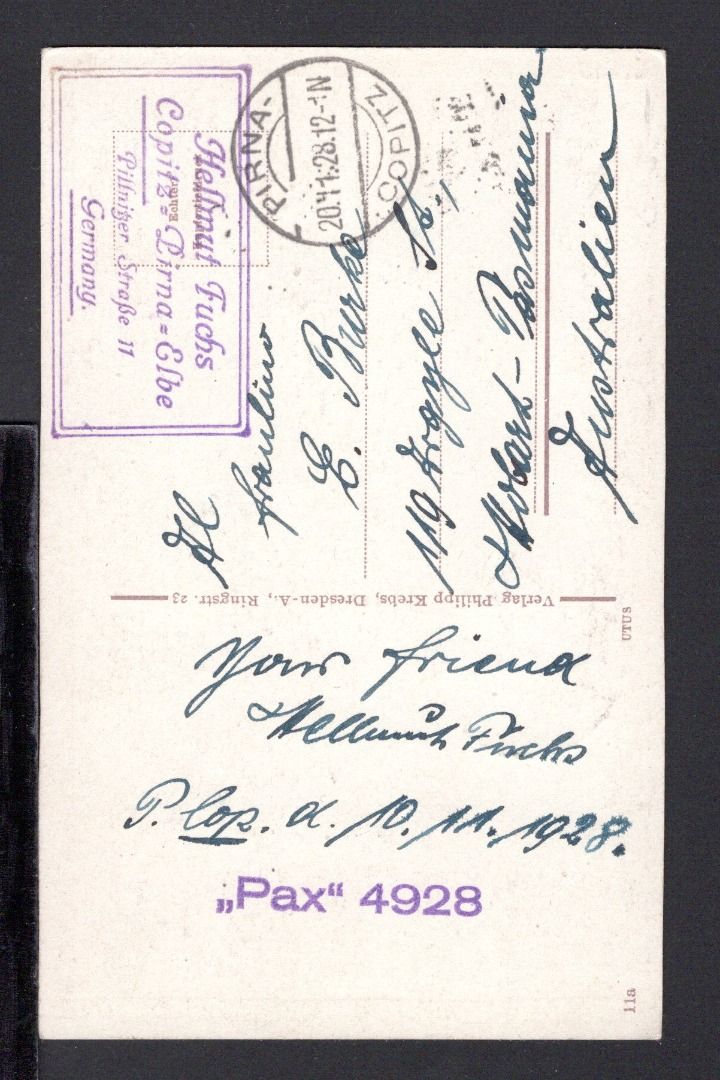 Hellmut Fuchs
Copitz=Pirna=Elbe
Pillnitzer Straße 11
Germany.
Echter
PIRNA-
COPITZ
28.12-1N
Fräulino
E. Burke
119 Argyle St.,
Hobart-Tasmania
Australien
Verlag Philipp Krebs, Dresden-A., Ringstr. 23
UTUS
Your friend
Hellmuth Fuchs
P. Cop. d. 10. 11. 1928.
„Pax“ 4928
11a